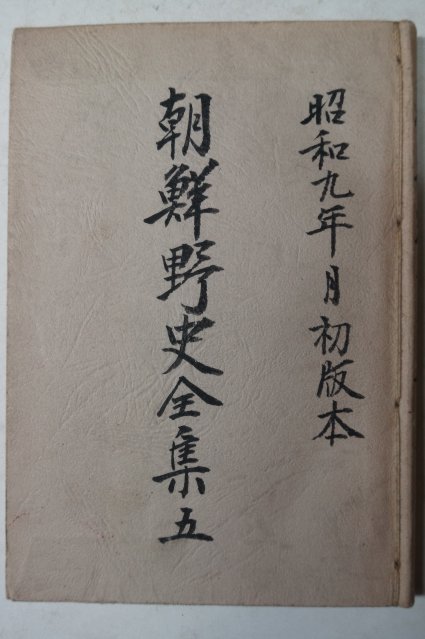 昭和九年月初版本
朝鮮野史全集五